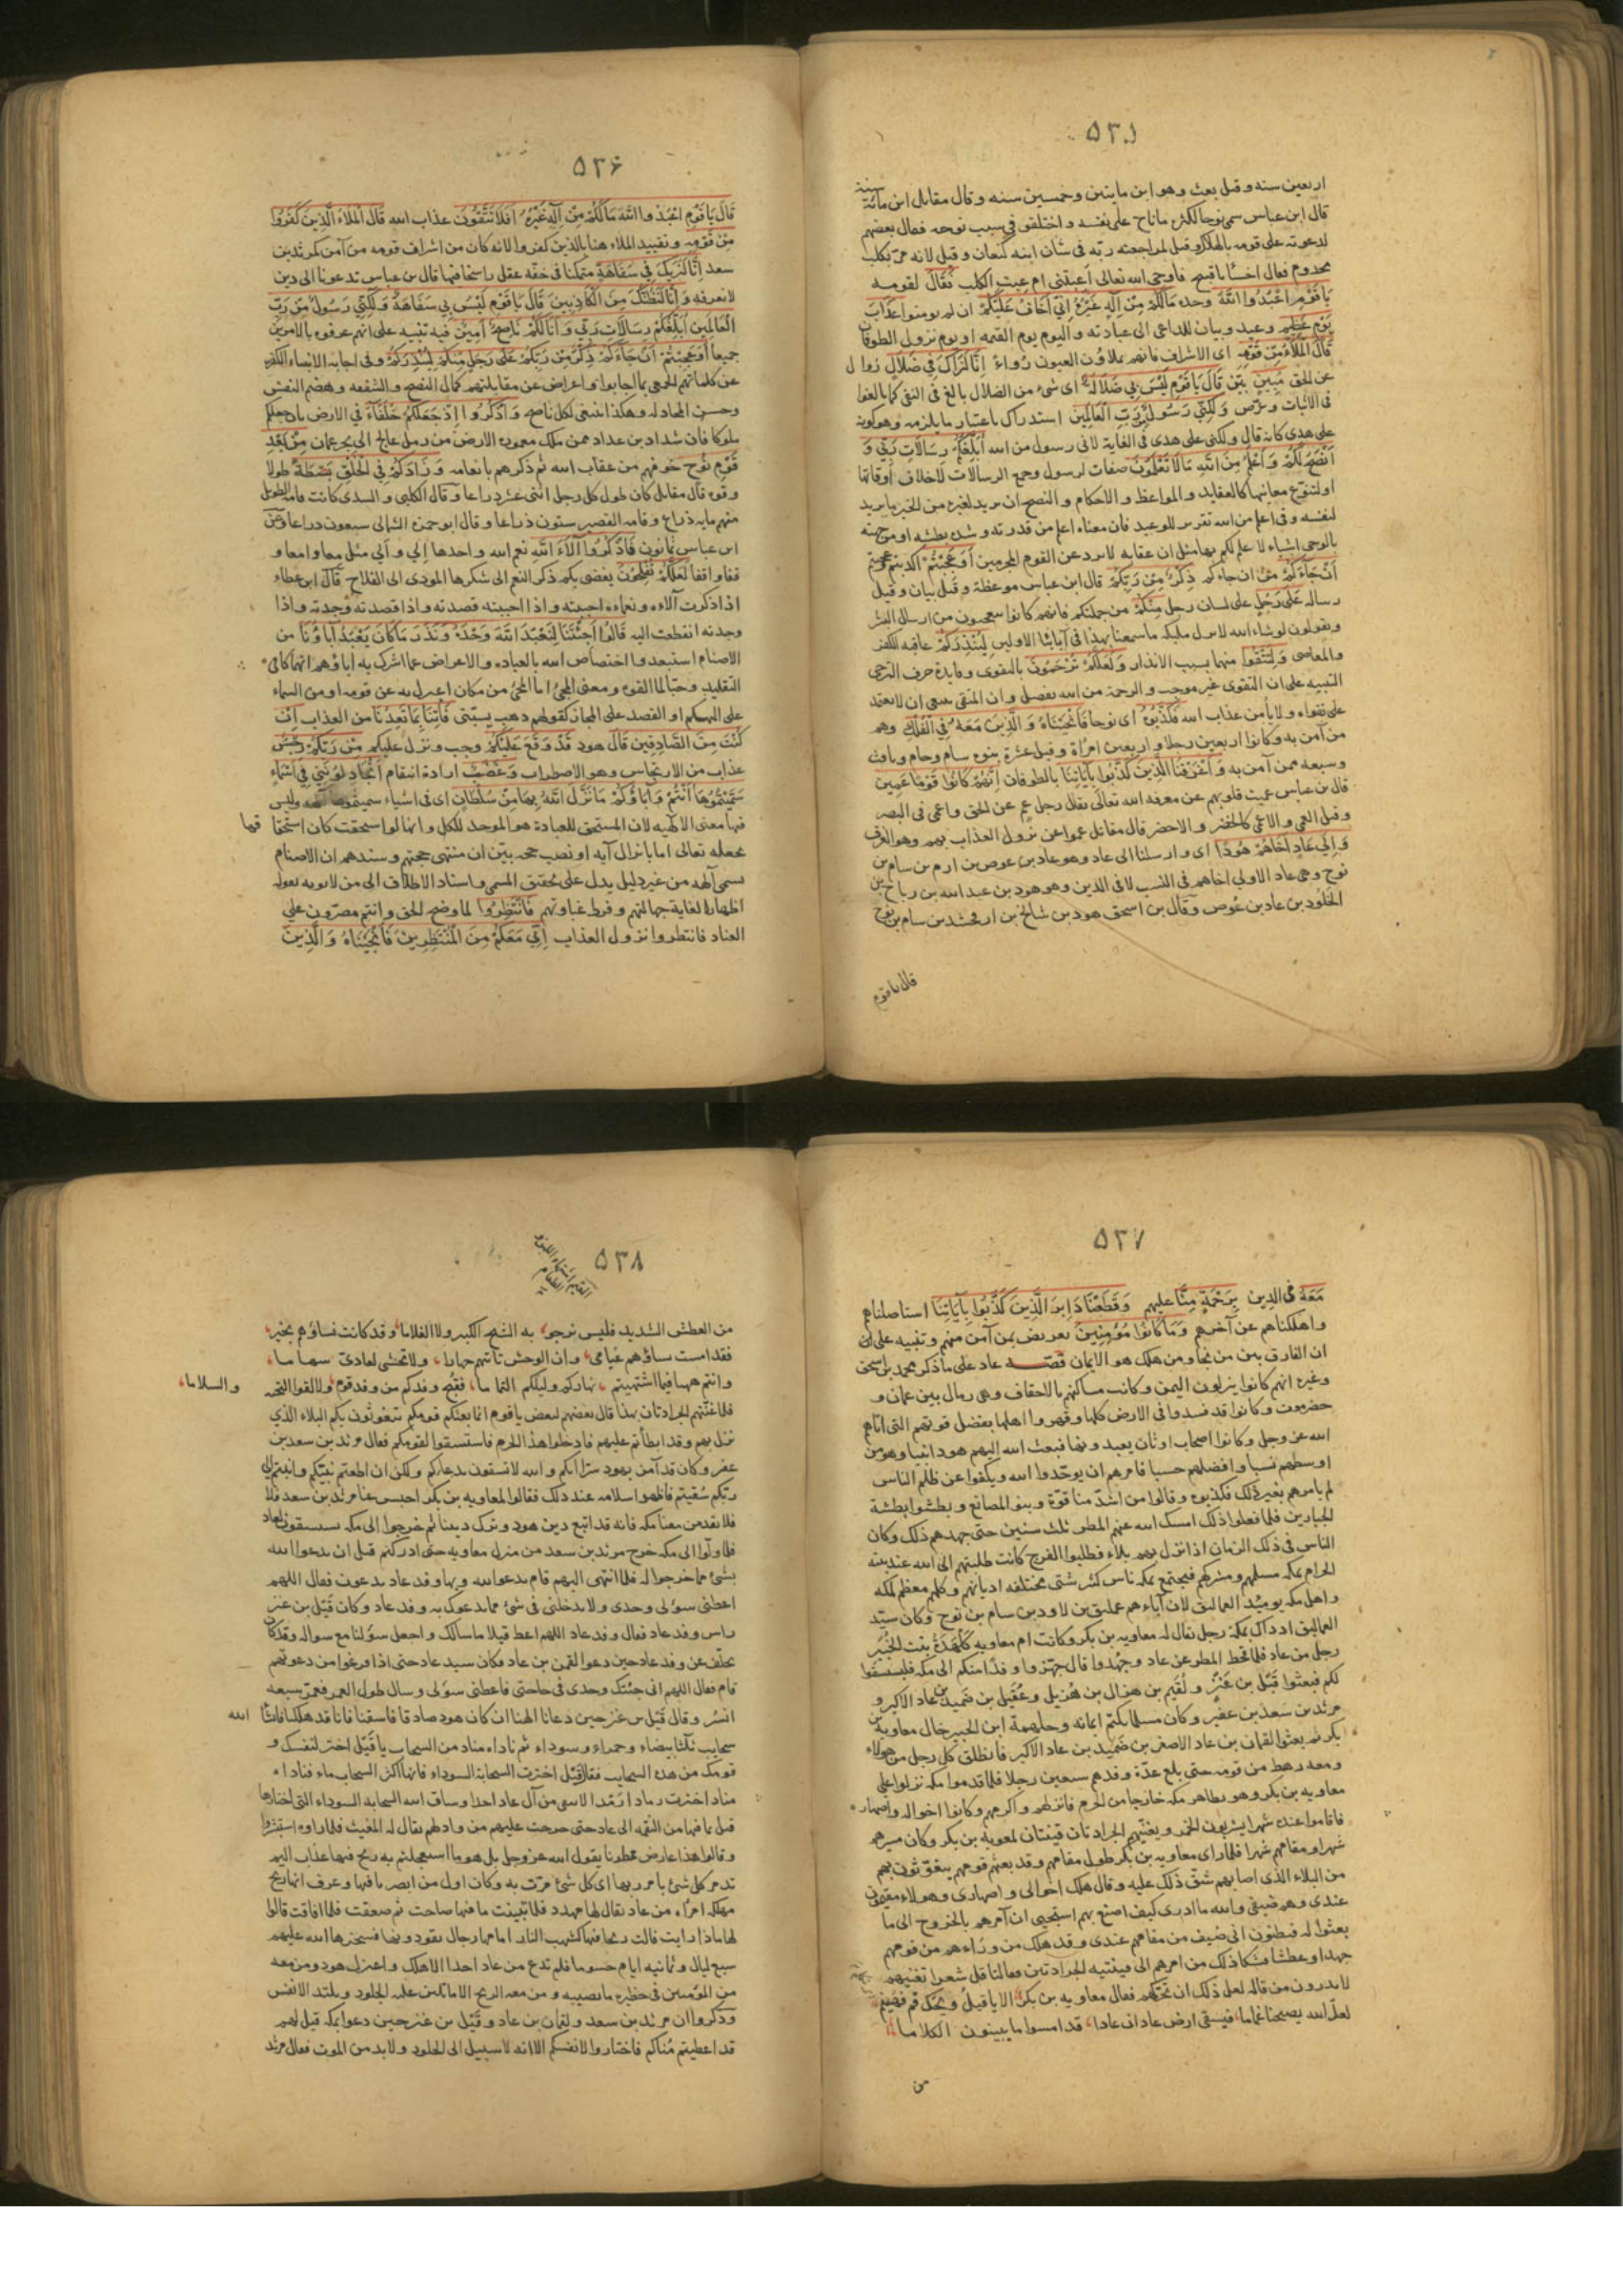 ٥٣٥
اربعين سنه وقيل بعث وهو ابن مايتين وخمسين سنه وقال مقاتل ابن مائة سنة
قال ابن عباس سمى نوحا لكثرة ما ناح على نفسه واختلفوا فى سبب نوحه فقال بعضهم
لدعوته على قومه بالهلاك وقيل لمراجعته ربه فى شان ابنه كنعان وقيل لانه مر بكلب
مجذوم فقال اخسأ يا قبيح فاوحى الله تعالى اعبتنى ام عبت الكلب فَقَالَ لقومه
يَا قَوْمِ اعْبُدُوا اللَّهَ وحده مَالَكُمْ مِنْ اِلَهٍ غَيْرُهُ اِنِّي اَخَافُ عَلَيْكُمْ ان لم تومنوا عَذَابَ
يَوْمٍ عَظِيمٍ وعيد وبيان للداعى الى عبادته واليوم يوم القيمه او يوم نزول الطوفان
قَالَ الْمَلَأُ مِنْ قَوْمِهِ اى الاشراف فانهم يملاؤن العيون رُواءً اِنَّا لَنَرَاكَ فِي ضَلَالٍ زوال
عن الحق مُبِينٍ بيّن قَالَ يَا قَوْمِ لَيْسَ بِي ضَلَالَةٌ اى شئ من الضلال بالغ فى النفى كما بالغوا
فى الاثبات وَلَكِنِّي رَسُولٌ مِنْ رَبِّ الْعَالَمِينَ استدراك باعتبار ما يلزمه وهو كونه
على هدى كانه قال ولكنى على هدى فى الغاية لانى رسول من الله اُبَلِّغُكُمْ رِسَالَاتِ رَبِّي وَ
اَنْصَحُ لَكُمْ وَاَعْلَمُ مِنَ اللَّهِ مَالَا تَعْلَمُونَ صفات لرسول وجمع الرسالات لاختلاف اوقاتها
او لتنوّع معانيها كالعقايد والمواعظ والاحكام والنصح ان يريد لغيره من الخير ما يريد
لنفسه وفى اعلم من الله تقرير للوعيد فان معناه اعلم من قدرته وشدة بطشه او من جهته
بالوحى اشياء لا علم لكم بها مثل ان عقابه لا يرد عن القوم المجرمين اَوَعَجِبْتُمْ اكذبتم وعجبتم
اَنْ جَاءَكُمْ من ان جاءكم ذِكْرٌ مِنْ رَبِّكُمْ قال ابن عباس موعظة وقيل بيان وقيل
رسالة عَلَى رَجُلٍ على لسان رجل مِنْكُمْ من جملتكم فانهم كانوا يتعجبون من ارسال البشر
ويقولون لو شاء الله لانزل مليكه ما سمعنا بهذا فى آبائنا الاولين لِيُنْذِرَكُمْ عاقبه الكفر
والمعاصى وَلِتَتَّقُوا منهما بسبب الانذار وَلَعَلَّكُمْ تُرْحَمُونَ بالتقوى وفايدة حرف الترجى
التنبيه على ان التقوى غير موجب والرحمة من الله تفضل وان المتقى ينبغى ان لا يعتمد
على تقواه ولا يامن عذاب الله فَكَذَّبُوهُ اى نوحا فَاَنْجَيْنَاهُ وَالَّذِينَ مَعَهُ فِي الْفُلْكِ وهم
من آمن به وكانوا اربعين رجلا واربعين امراة وقيل عشرة بنوه سام وحام ويافث
وسبعه ممن آمن به وَاَغْرَقْنَا الَّذِينَ كَذَّبُوا بِآيَاتِنَا بالطوفان اِنَّهُمْ كَانُوا قَوْمًا عَمِينَ
قال بن عباس عميت قلوبهم عن معرفه الله تعالى يقال رجل عم عن الحق واعمى فى البصر
وقيل العمى والاعمى كالخضر والاخضر قال مقاتل عموا عن نزول العذاب بهم وهو الغرق
وَاِلَى عَادٍ اَخَاهُمْ هُودًا اى وارسلنا الى عاد وهو عاد بن عوص بن ارم بن سام بن
نوح وهى عاد الاولى اخاهم فى النسب لا فى الدين وهو هود بن عبد الله بن رباح بن
الخلود بن عاد بن عوص وقال بن اسحق هود بن شالخ بن ارفحشد بن سام بن نوح
قال يا قوم
٥٣۶
قَالَ يَا قَوْمِ اعْبُدُوا اللَّهَ مَالَكُمْ مِنْ اِلَهٍ غَيْرُهُ اَفَلَا تَتَّقُونَ عذاب الله قَالَ الْمَلَأُ الَّذِينَ كَفَرُوا
مِنْ قَوْمِهِ وتقييد الملاء هنا بالذين كفروا لانه كان من اشراف قومه من آمن كمرثد بن
سعد اِنَّا لَنَرَيكَ فِي سَفَاهَةٍ متمكنا فى خفّه عقل راسخا فيها قال بن عباس تدعونا الى دين
لا نعرفه وَاِنَّا لَنَظُنُّكَ مِنَ الْكَاذِبِينَ قَالَ يَا قَوْمِ لَيْسَ بِي سَفَاهَةٌ وَلَكِنِّي رَسُولٌ مِنْ رَبِّ
الْعَالَمِينَ اُبَلِّغُكُمْ رِسَالَاتِ رَبِّي وَاَنَا لَكُمْ نَاصِحٌ اَمِينٌ فيه تنبيه على انهم عرفوه بالامرين
جميعا اَوَعَجِبْتُمْ اَنْ جَاءَكُمْ ذِكْرٌ مِنْ رَبِّكُمْ عَلَى رَجُلٍ مِنْكُمْ لِيُنْذِرَكُمْ وفى اجابه الانبياء الكفره
عن كلماتهم الحمقى بما اجابوا واعراض عن مقابلتهم كمال النصح والشفقه وهضم النفس
وحسن المجادله وهكذا ينبغى لكل ناصح وَاذْكُرُوا اِذْ جَعَلَكُمْ خُلَفَاءَ فى الارض بان جعلكم
ملوكا فان شداد بن عداد ممن ملك معموره الارض من رمل عالج الى بحر عمان مِنْ بَعْدِ
قَوْمِ نُوحٍ خوفهم من عقاب الله ثم ذكرهم بانعامه وَزَادَكُمْ فِي الْخَلْقِ بَصْطَةً طولا
وقوه قال مقاتل كان طول كل رجل اثنى عشر ذراعا وقال الكلبى والسدى كانت قامه الطويل
منهم مايه ذراع وقامه القصير ستون ذراعا وقال ابو حمزه الثمالى سبعون ذراعا وعن
ابن عباس ثمانون فَاذْكُرُوا آلَاءَ اللَّهِ نعم الله واحدها اِلى واَلى مثل معا وامعا و
قفا واقفا لَعَلَّكُمْ تُفْلِحُونَ يفضى بكم ذكر النعم الى شكرها المودى الى الفلاح قال ابن عطاء
اذا ذكرت آلاءه ونعماءه احببته واذا احببته قصدته واذا قصدته وجدته واذا
وجدته انقطعت اليه قَالُوا اَجِئْتَنَا لِنَعْبُدَ اللَّهَ وَحْدَهُ وَنَذَرَ مَا كَانَ يَعْبُدُ آبَاؤُنَا من
الاصنام استبعدوا اختصاص الله بالعباده والاعراض عما اشرك به اباؤهم انهماكا فى
التقليد وحبّا لما الفوه ومعنى المجئ اما المجئ من مكان اعتزل به عن قومه او من السماء
على التهكم او القصد على المجاز كقولهم ذهب يسبّنى فَأْتِنَا بِمَا تَعِدُنَا من العذاب اِنْ
كُنْتَ مِنَ الصَّادِقِينَ قَالَ هود قَدْ وَقَعَ عَلَيْكُمْ وجب ونزل عليكم مِنْ رَبِّكُمْ رِجْسٌ
عذاب من الارتجاس وهو الاضطراب وَغَضَبٌ ارادة انتقام اَتُجَادِلُونَنِي فِي اَسْمَاءٍ
سَمَّيْتُمُوهَا اَنْتُمْ وَآبَاؤُكُمْ مَا نَزَّلَ اللَّهُ بِهَا مِنْ سُلْطَانٍ اى فى اشياء سميتموها وليس
فيها معنى الالهيه لان المستحق للعبادة هو الموجد للكل وانها لو استحقت كان استحقاقها
بجعله تعالى اما بانزال آيه او نصب حجه بيّن ان منتهى حجتهم وسندهم ان الاصنام
تسمى آلهه من غير دليل يدل على تحقيق المسمى واسناد الاطلاق الى من لا يوبه بقوله
اظهارا لغاية جهالتهم وفرط غباوتهم فَانْتَظِرُوا لما وضح الحق وانتم مصرّون على
العناد فانتظروا نزول العذاب اِنِّي مَعَكُمْ مِنَ الْمُنْتَظِرِينَ فَاَنْجَيْنَاهُ وَالَّذِينَ
٥٣٧
مَعَهُ فى الدين بِرَحْمَةٍ مِنَّا عليهم وَقَطَعْنَا دَابِرَ الَّذِينَ كَذَّبُوا بِآيَاتِنَا استاصلناهم
واهلكناهم عن آخرهم وَمَا كَانُوا مُؤْمِنِينَ تعريض بمن آمن منهم وتنبيه على ان
ان الفارق بين من نجا ومن هلك هو الايمان قصّه عاد على ما ذكر محمد بن اسحق
وغيره انهم كانوا ينزلون اليمن وكانت مساكنهم بالاحقاف وهى رمال بين عمان و
حضرموت وكانوا قد فسدوا فى الارض كلها وقهروا اهلها بفضل قوتهم التى اتاهم
الله عز وجل وكانوا اصحاب اوثان يعبدونها فبعث الله اليهم هودا نبيا وهو من
اوسطهم نسبا وافضلهم حسبا فامرهم ان يوحّدوا الله ويكفوا عن ظلم الناس
لم يامرهم بغير ذلك فكذبوه وقالوا من اشدّ منا قوّة وبنو المصانع وبطشوا بطشة
الجبارين فلما فعلوا ذلك امسك الله عنهم المطر ثلث سنين حتى جهدهم ذلك وكان
الناس فى ذلك الزمان اذا نزل بهم بلاء فطلبوا الفرج كانت طلبتهم الى الله عند بيته
الحرام بمكه مسلمهم ومشركهم فيجتمع بمكه ناس كثير شتى مختلفه اديانهم وكلهم معظم لمكه
واهل مكه يومئذ العماليق لان آباءهم عمليق بن لاود بن سام بن نوح وكان سيّد
العماليق اذ ذاك بمكة رجل يقال له معاويه بن بكر وكانت ام معاويه كلهدة بنت الخبير
رجل من عاد فلما قحط المطر عن عاد وجهدوا قال جهّزوا وفدا منكم الى مكه فليستسقوا
لكم فبعثوا قيل بن عنز ولقيم بن هزال بن هزيل وعقيل بن ضميد بن عاد الاكبر و
مرثد بن سعد بن عفير وكان مسلما يكتم ايمانه وجلهمة ابن الخبير خال معاوية بن
بكر ثم بعثوا لقمان بن عاد الاصغر بن ضميد بن عاد الاكبر فانطلق كل رجل من هولاء
ومعه رهط من قومه حتى بلغ عدّة وفدهم سبعين رجلا فلما قدموا مكه نزلوا على
معاويه بن بكر وهو بظاهر مكه خارجا من الحرم فانزلهم واكرمهم وكانوا اخواله واصهاره
فاقاموا عنده شهرا يشربون الخمر ويغنّيهم الجرادتان قينتان لمعوية بن بكر وكان مسيرهم
شهرا ومقامهم شهرا فلما راى معاويه بن بكر طول مقامهم وقد بعثهم قومهم يتغوّثون بهم
من البلاء الذى اصابهم شقّ ذلك عليه وقال هلك اخوالى واصهارى وهولاء مقيمون
عندى وهم ضيفى والله ما ادرى كيف اصنع بهم استحيى ان آمرهم بالخروج الى ما
بعثوا له فيظنون انى ضيف من مقامهم عندى وقد هلك من وراءهم من قومهم
جهدا وعطشا فشكا ذلك من امرهم الى قينتيه الجرادتين فقالتا قل شعرا نغنيهم
لا يدرون من قاله لعل ذلك ان يحرّكهم فقال معاويه بن بكر الا يا قيل ويحك قم فهينم
لعلّ الله يصبحنا غماما، فيسقى ارض عاد ان عادا، قد امسوا ما يبينون الكلاما
من
٥٣٨
من العطش الشديد فليس نرجو، به الشيخ الكبير ولا الغلاما، وقد كانت نساؤهم بخير،
فقد امست نساؤهم عيامى، وان الوحش تاتيهم جهارا، ولا تخشى لعادىّ سهاما،
وانتم ههنا فيما اشتهيتم، نهاركم وليلكم التماما، فقبّح وفدكم من وفد قوم، ولا لقوا التحية والسلاما،
فلما غنّتهم الجرادتان بهذا قال بعضهم لبعض يا قوم انما بعثكم قومكم يتغوثون بكم البلاء الذى
نزل بهم وقد ابطأتم عليهم فادخلوا هذا الحرم فاستسقوا لقومكم فقال مرثد بن سعد بن
عفير وكان قد آمن بهود سرّا انكم والله لا تسقون بدعائكم ولكن ان اطعتم نبيّكم وانبتم الى
ربّكم سُقيتم فاظهر اسلامه عند ذلك فقالوا لمعاويه بن بكر احبس عنا مرثد بن سعد فلا
فلا يقدمن معنا مكه فانه قد اتبع دين هود وترك ديننا ثم خرجوا الى مكه يستسقون لعاد
فلما ولّوا الى مكه خرج مرثد بن سعد من منزل معاويه حتى ادركهم قبل ان يدعوا الله
بشئ مما خرجوا له فلما انتهى اليهم قام يدعو الله وبها وفد عاد يدعون فقال اللهم
اعطنى سؤلى وحدى ولا تدخلنى فى شئ مما يدعوك به وفد عاد وكان قَيْل بن عنز
راس وفد عاد فقال وفد عاد اللهم اعط قيلا ما سالك واجعل سؤلنا مع سواله وقد كان
تخلّف عن وفد عاد حين دعوا لقمن بن عاد وكان سيد عاد حتى اذا فرغوا من دعوتهم
قام فقال اللهم انى جئتك وحدى فى حاجتى فاعطنى سؤلى وسال طول العمر فعمّر سبعه
انسُر وقال قَيْل بن عنز حين دعا يا الهنا ان كان هود صادقا فاسقنا فانا قد هلكنا فانشا الله
سحايب ثلثا بيضاء وحمراء وسوداء ثم ناداه مناد من السحاب يا قَيْل اختر لنفسك و
قومك من هذه السحايب فقال قيل اخترت السحابة السوداء فانها اكثر السحاب ماء فناداه
مناد اخترت رمادا رمدا لا تبقى من آل عاد احدا وساق الله السحابه السوداء التى اختارها
قيل بما فيها من النقمه الى عاد حتى خرجت عليهم من واد لهم يقال له المغيث فلما راوه استبشروا
وقالوا هذا عارض ممطرنا يقول الله عز وجل بل هو ما استعجلتم به ريح فيها عذاب اليم
تدمر كل شئ بامر ربها اى كل شئ مرّت به وكان اول من ابصر ما فيها وعرف انها ريح
مهلكه امراه من عاد يقال لها مهدد فلما تبينت ما فيها صاحت ثم صعقت فلما افاقت قالوا
لها ماذا رايت قالت ريحا فيها كشهب النار امامها رجال يقودونها فسخرها الله عليهم
سبع ليال وثمانيه ايام حسوما فلم تدع من عاد احدا الا هلك واعتزل هود ومن معه
من المؤمنين فى حظيره ما يصيبه ومن معه الريح الا ما تلين عليه الجلود ويلتذ الانفس
وذكروا ان مرثد بن سعد ولقمان بن عاد وقَيْل بن عنز حين دعوا بمكه قيل لهم
قد اعطيتم مُناكم فاختاروا لانفسكم الا انه لا سبيل الى الخلود ولا بد من الموت فقال مرثد